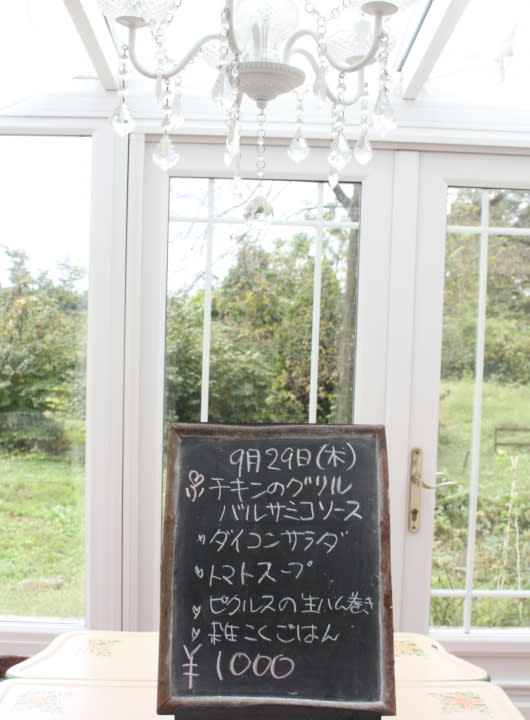 9月29日(木)
チキンのグリル
バルサミコソース
ダイコンサラダ
トマトスープ
ピクルスの生ハム巻き
雑こくごはん
¥1000